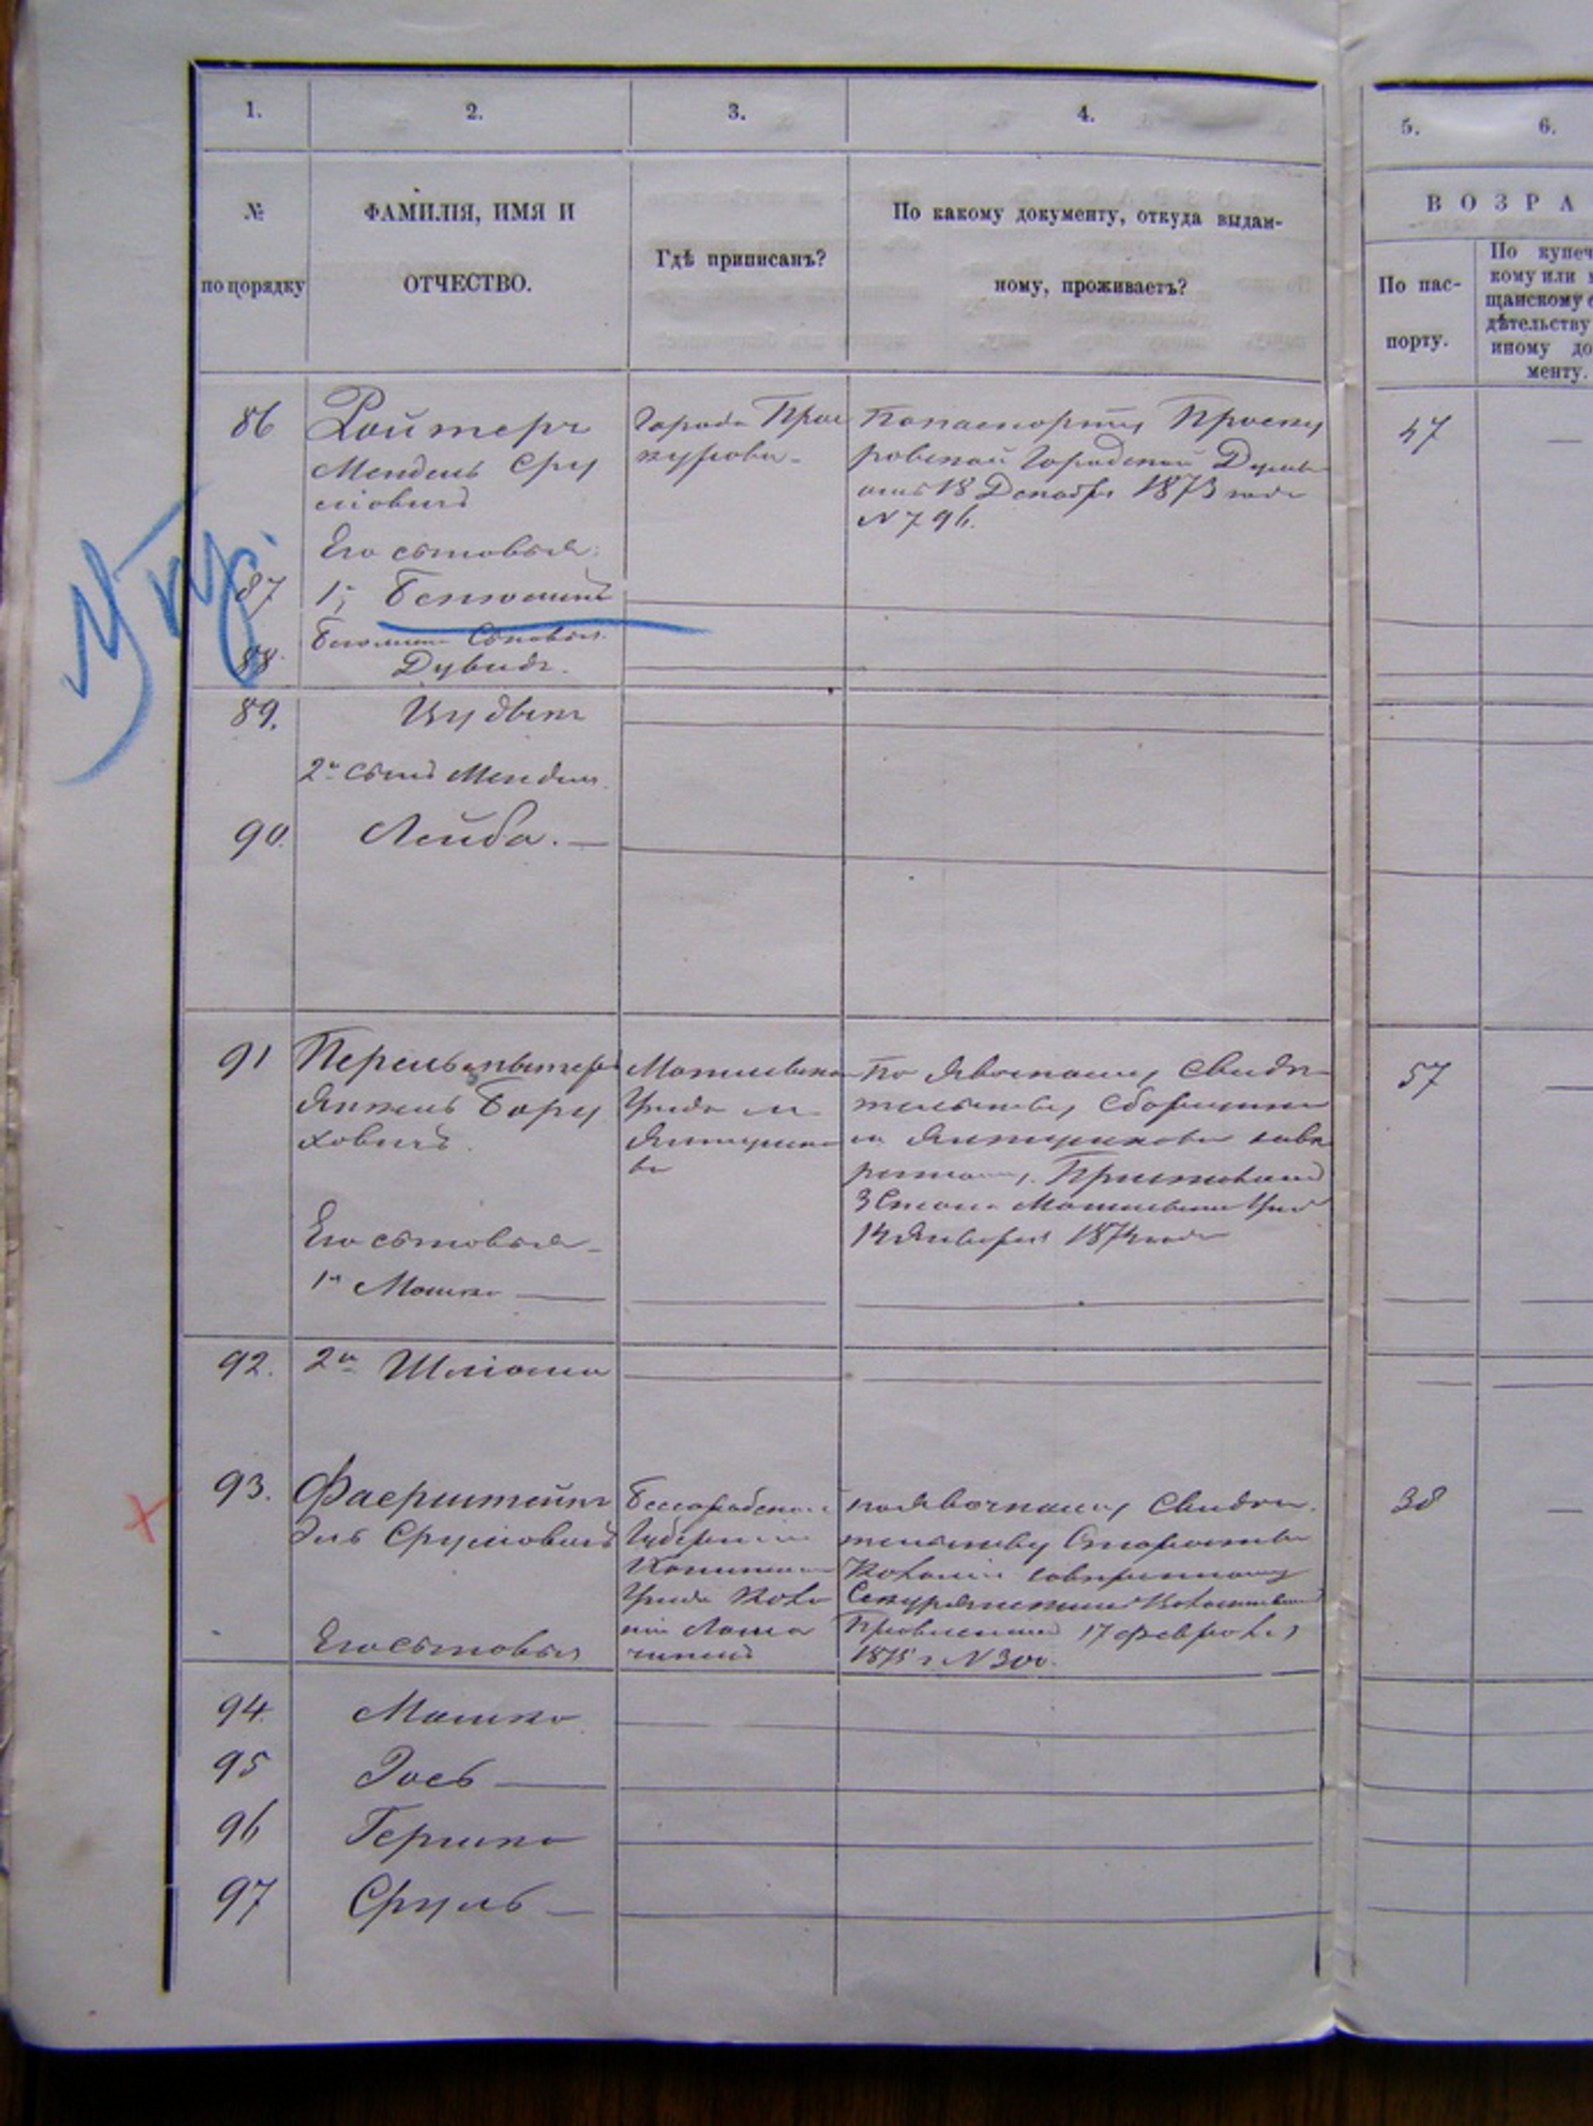 1. 2. 3. 4. 5. 6.
№
по порядку
ФАМИЛІЯ, ИМЯ И
ОТЧЕСТВО.
Гдѣ приписанъ?
По какому документу, откуда выдан-
ному, проживаетъ?
ВОЗРА
По пас-
порту.
По купеч
кому или
щанскому
дѣтельству
иному до
менту.
86
Ройтеръ
Мендель Сру
левичъ
Города Прос
курова
По паспорту Проску
ровской Городской Думы
отъ 18 Декабря 1873 года
№ 796.
47
Его сыновья:
87
1й Беньоминъ
88
Беньомина Сыновья
Дувидъ
89.
2й сынъ Менделя
90
Лейба.
91
Перельъ
Янкель Бору
ховичъ
Могилевска
Уѣзда м.
По явочному Свидѣ
тельству Сборщика
3 Стана Могилевска Уѣз
14 Января 1874 года
57
Его сыновья
1й Мошко
92.
2й Шліома
93.
Фаерштейнъ
Эль Срулювичъ
Бессарабской
Губерніи
Хотинска
Уѣзда Коло
ніи
по явочному Свидѣ
тельству Старосты
Колоніи
Секурянскимъ Волостнымъ
Правленіемъ 17 февраля
1875 г № 300.
38
Его сыновья
94.
Мошко
95
Іось
96
Гершко
97
Сруль